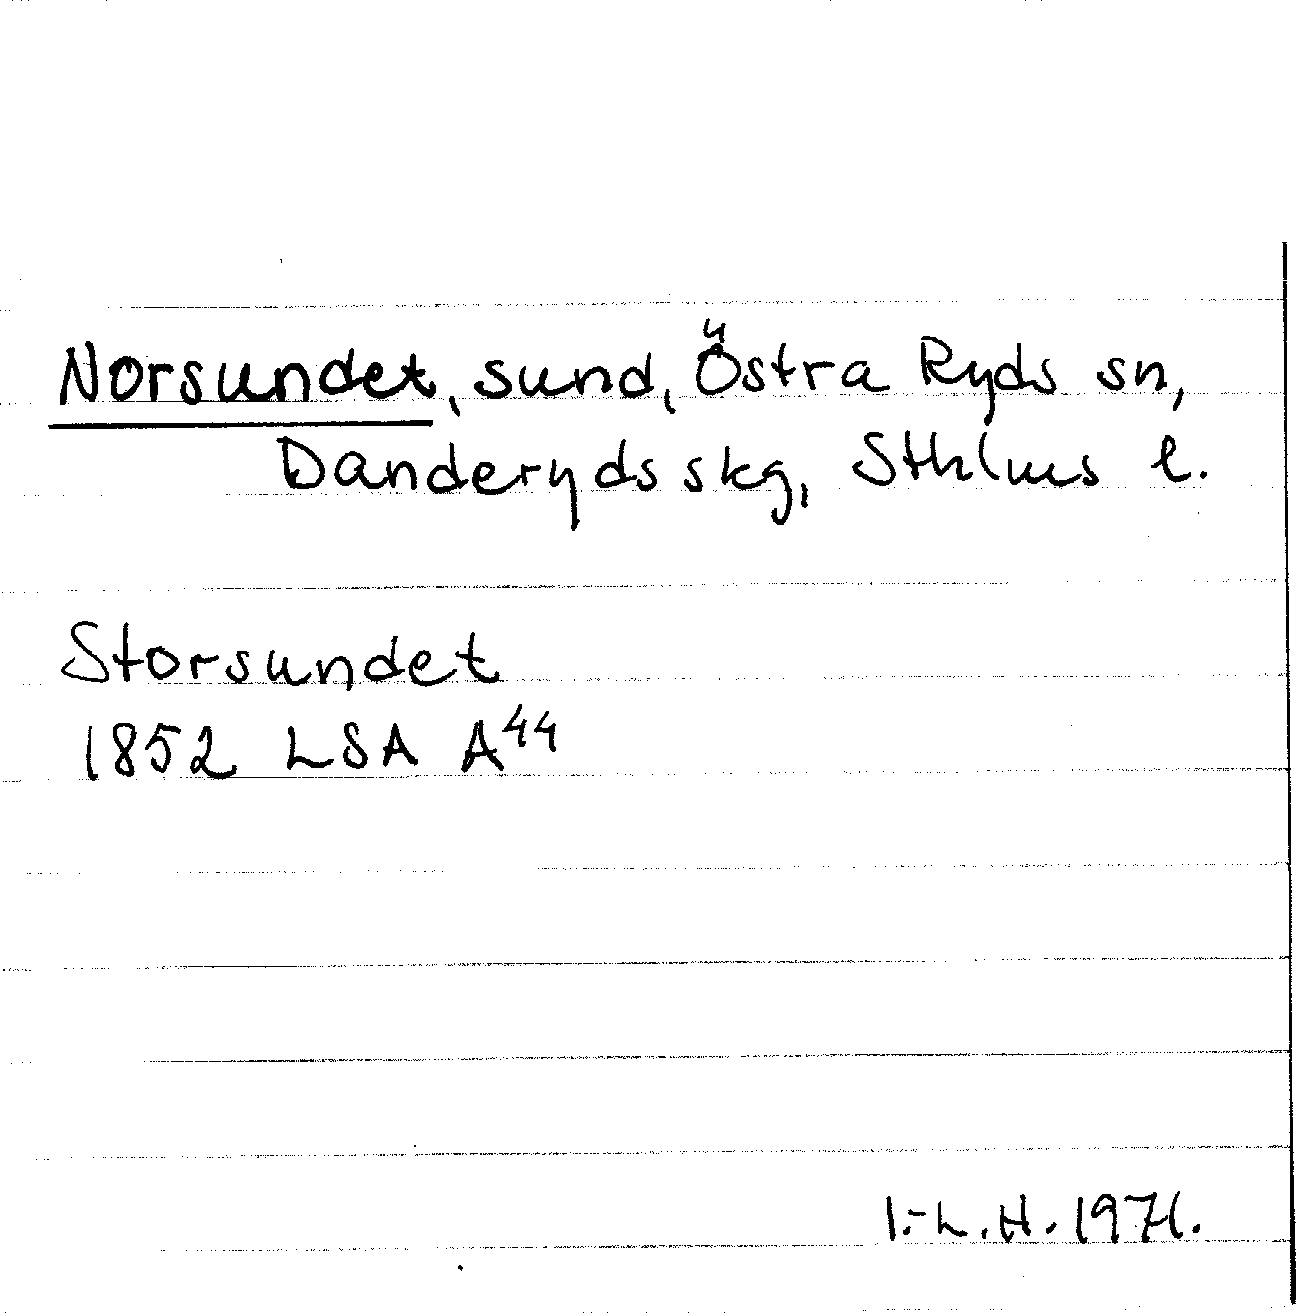 Norsundet, sund, Östra Ryds sn,
Danderyds skg, Sthlms l.
Storsundet
1852 LSA A44
I.-L.H. 1971.